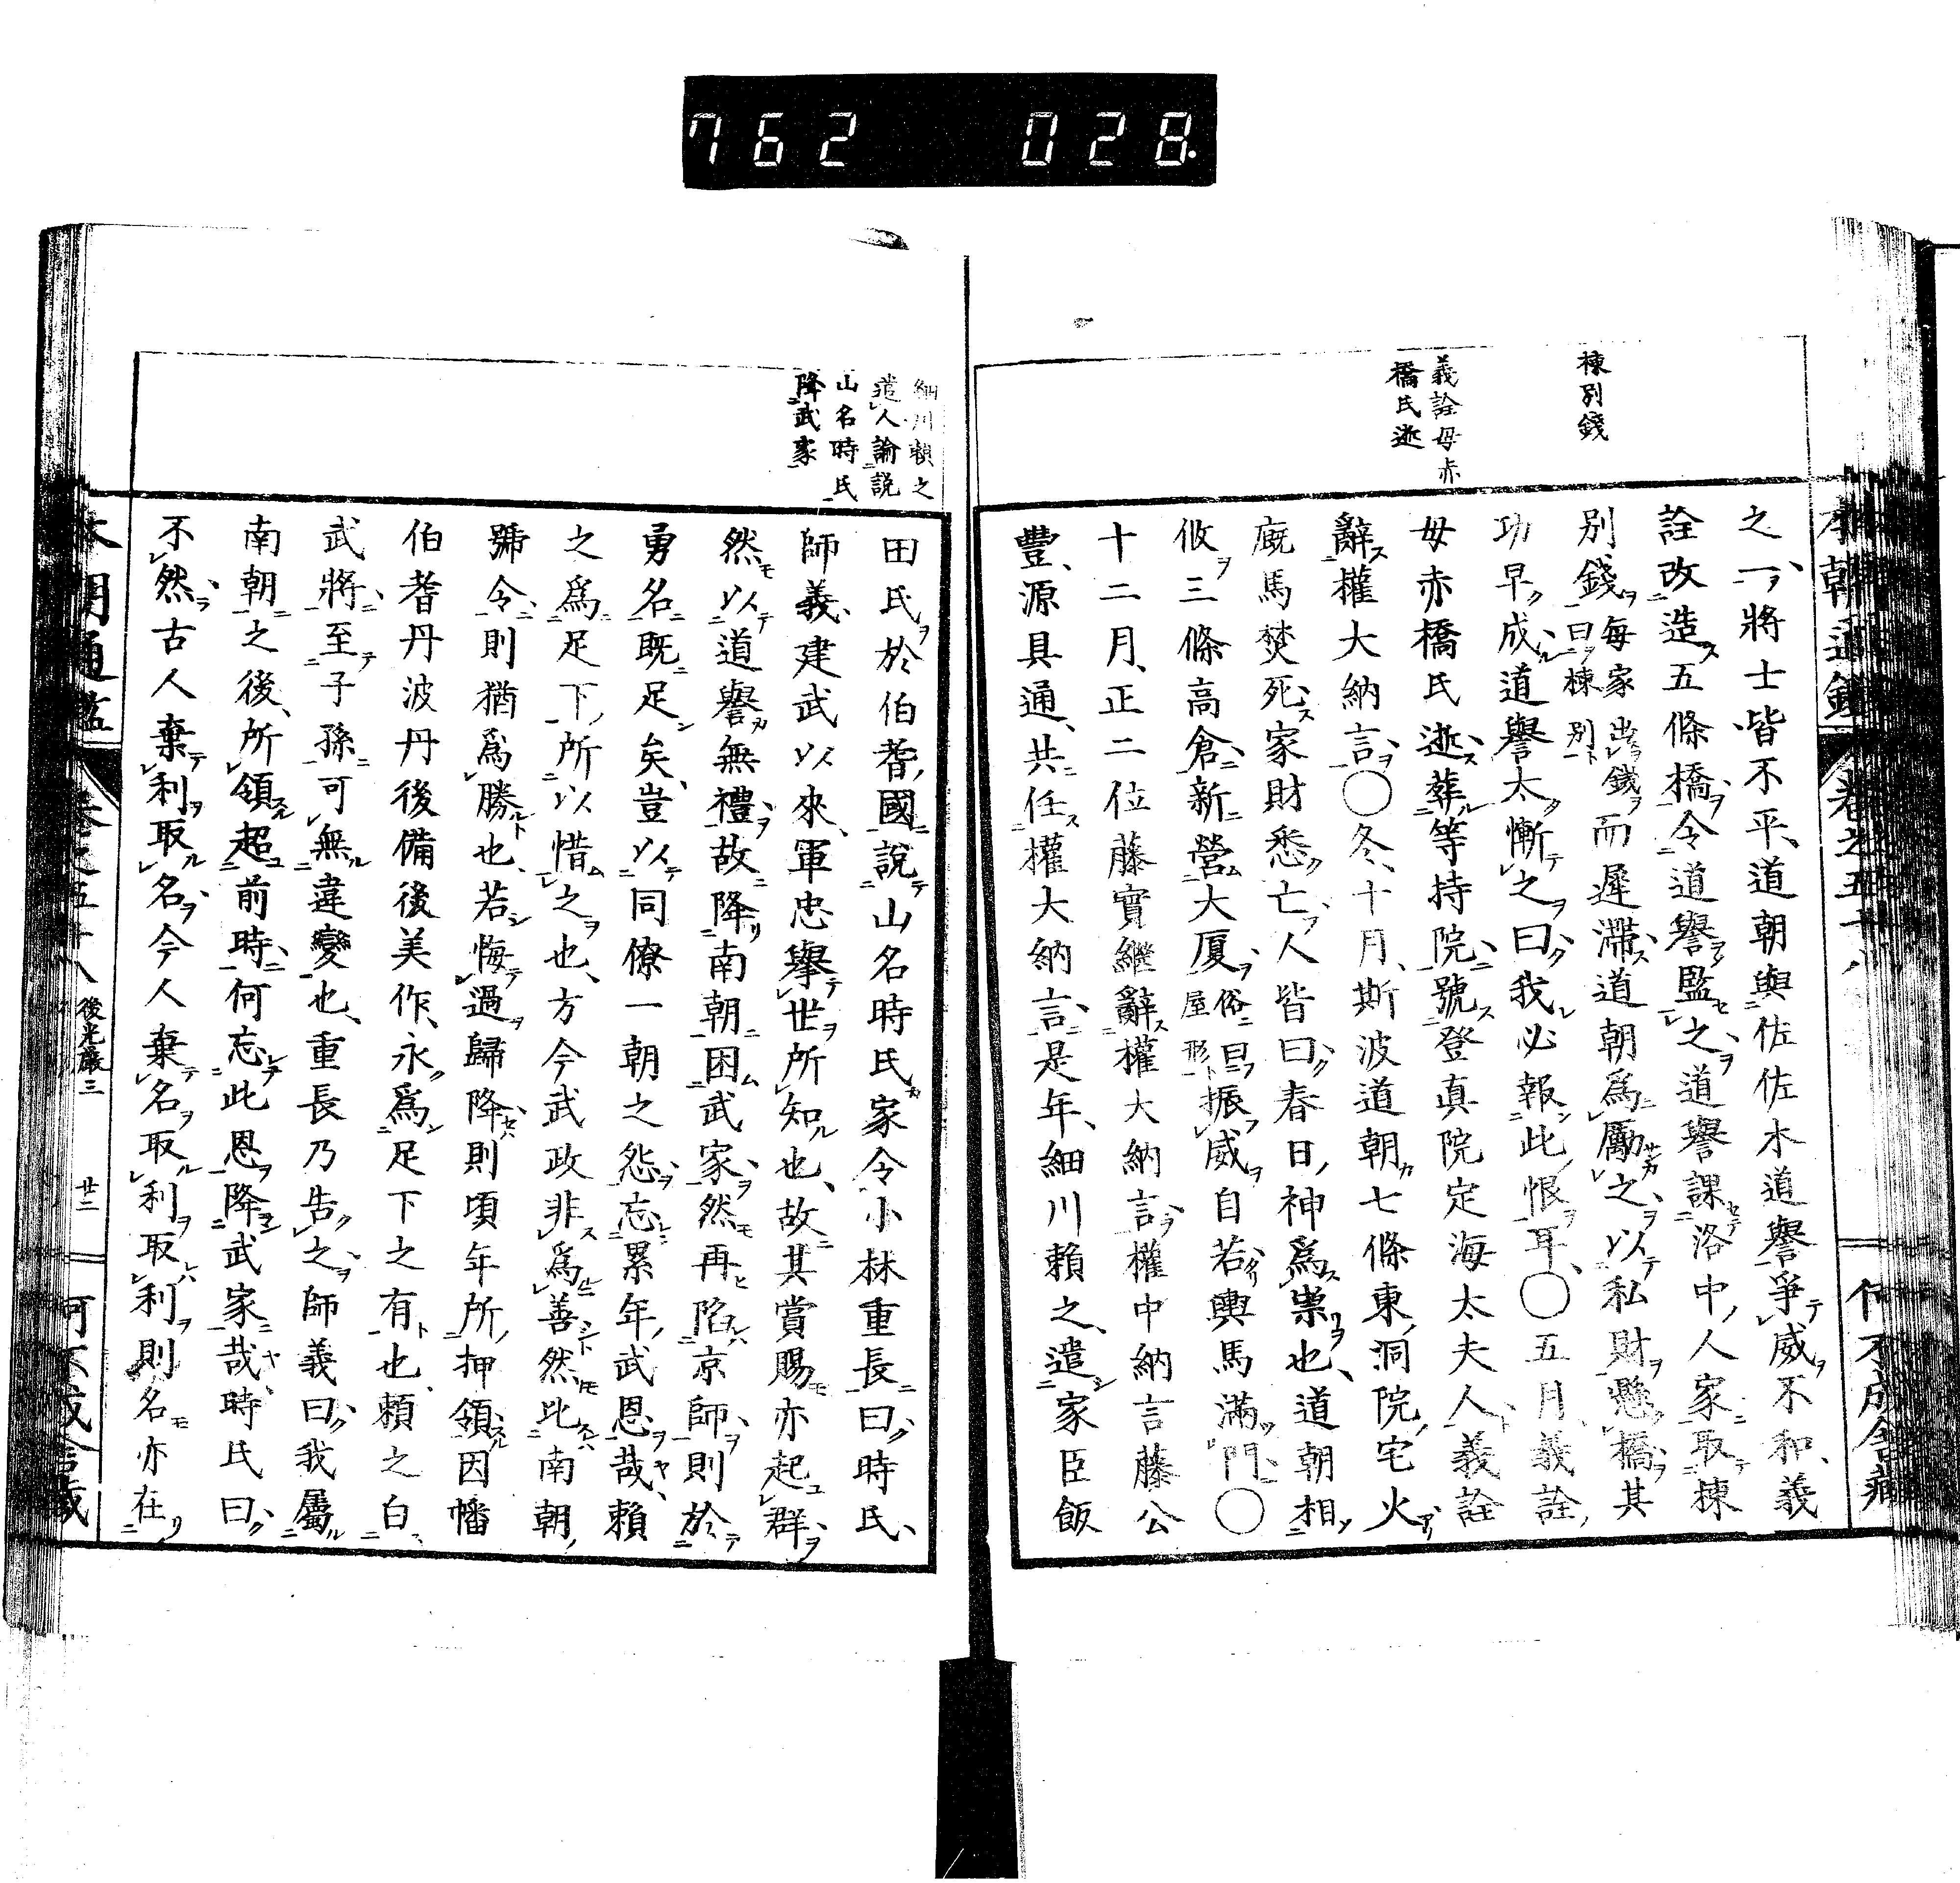 762 028.
本朝通鑑 卷之五十八
何不成舍藏
棟別錢
義詮母赤
橋氏逝
之一將士皆不平道朝與佐佐木道譽爭威不和義
詮改造五條橋令道譽監之道譽課洛中人家取棟
別錢每家出錢曰棟別而遲滯道朝爲勵之以私財懸橋其
功早成道譽太慚之曰我必報此恨耳〇五月義詮
母赤橋氏逝葬等持院號登真院定海太夫人義詮
辭權大納言〇冬十月斯波道朝七條東洞院宅火
廐馬焚死家財悉亡人皆曰春日神爲祟也道朝相
攸三條高倉新營大厦俗曰屋形振威自若輿馬滿門〇
十二月正二位藤實繼辭權大納言權中納言藤公
豐源具通共任權大納言是年細川賴之遣家臣飯
細川賴之
遣人論說
山名時氏
降武家
田氏於伯耆國說山名時氏家令小林重長曰時氏
師義建武以來軍忠擧世所知也故其賞賜亦起群
然以道譽無禮故降南朝困武家然再陷京師則於
勇名既足矣豈以同僚一朝之怨忘累年武恩哉賴
之爲足下所以惜之也方今武政非爲善然比南朝
號令則猶爲勝也若悔過歸降則頃年所押領因幡
伯耆丹波丹後備後美作永爲足下之有也賴之白
武將至子孫可無違變也重長乃告之師義曰我屬
南朝之後所領超前時何忘此恩降武家哉時氏曰
不然古人棄利取名今人棄名取利取利則名亦在
本朝通鑑 卷之五十八 後光嚴三 廿二 何不成舍藏